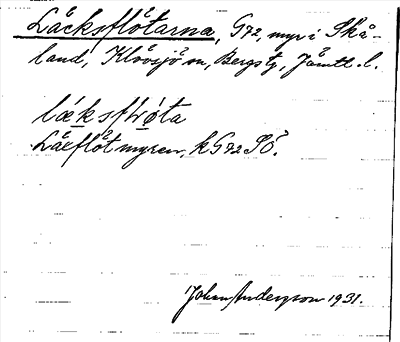 Läcksflötarna, G72, myr i Skå-
land, Klövsjö sn, Bergs tg, Jämtl. l.
læksfɯøta
Läeflötmyren, k G72 SÖ.
Johan Anderson 1931.